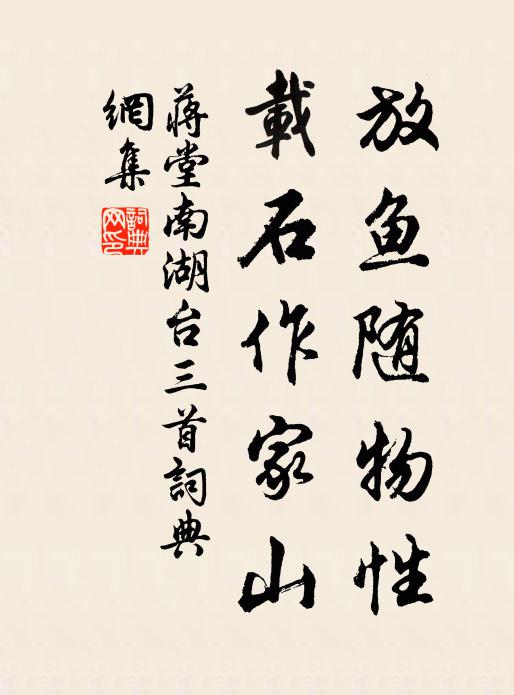 放鱼随物性
載石作家山
蔣堂南湖台三首詞典
網集
詞典网印